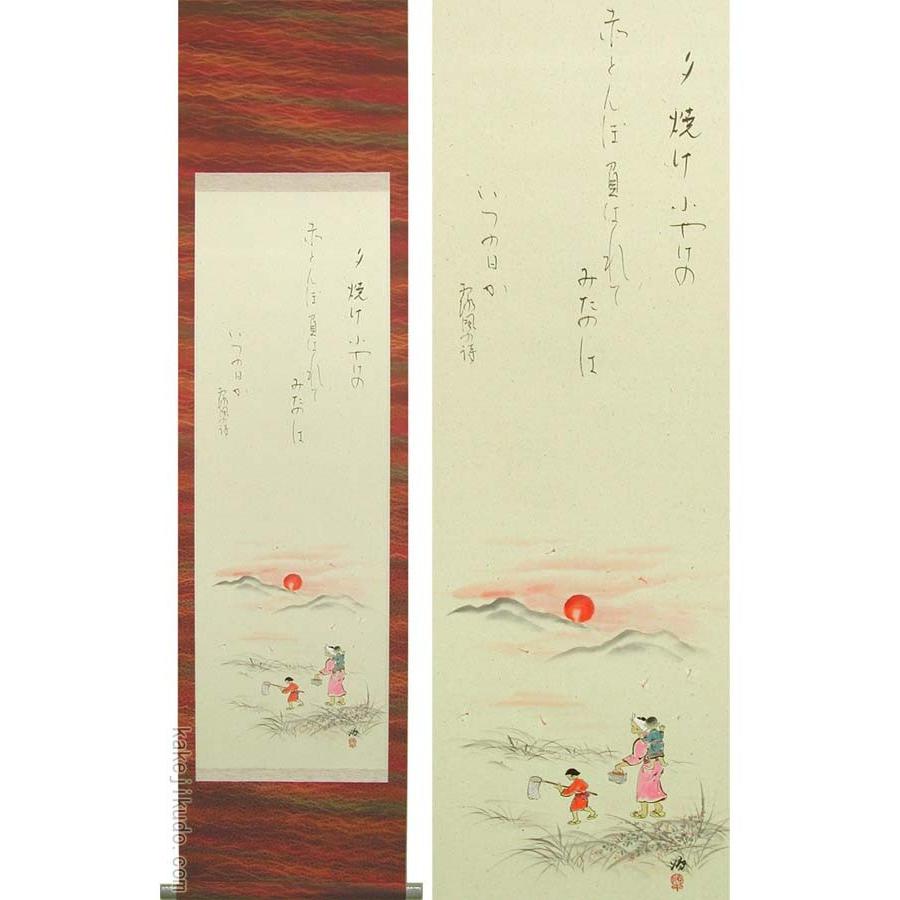 夕焼け小やけの
赤とんぼ負はれて
みたのは
いつの日か
露風の詩
夕焼け小やけの
赤とんぼ負はれて
みたのは
いつの日か
露風の詩
kakejikudo.com